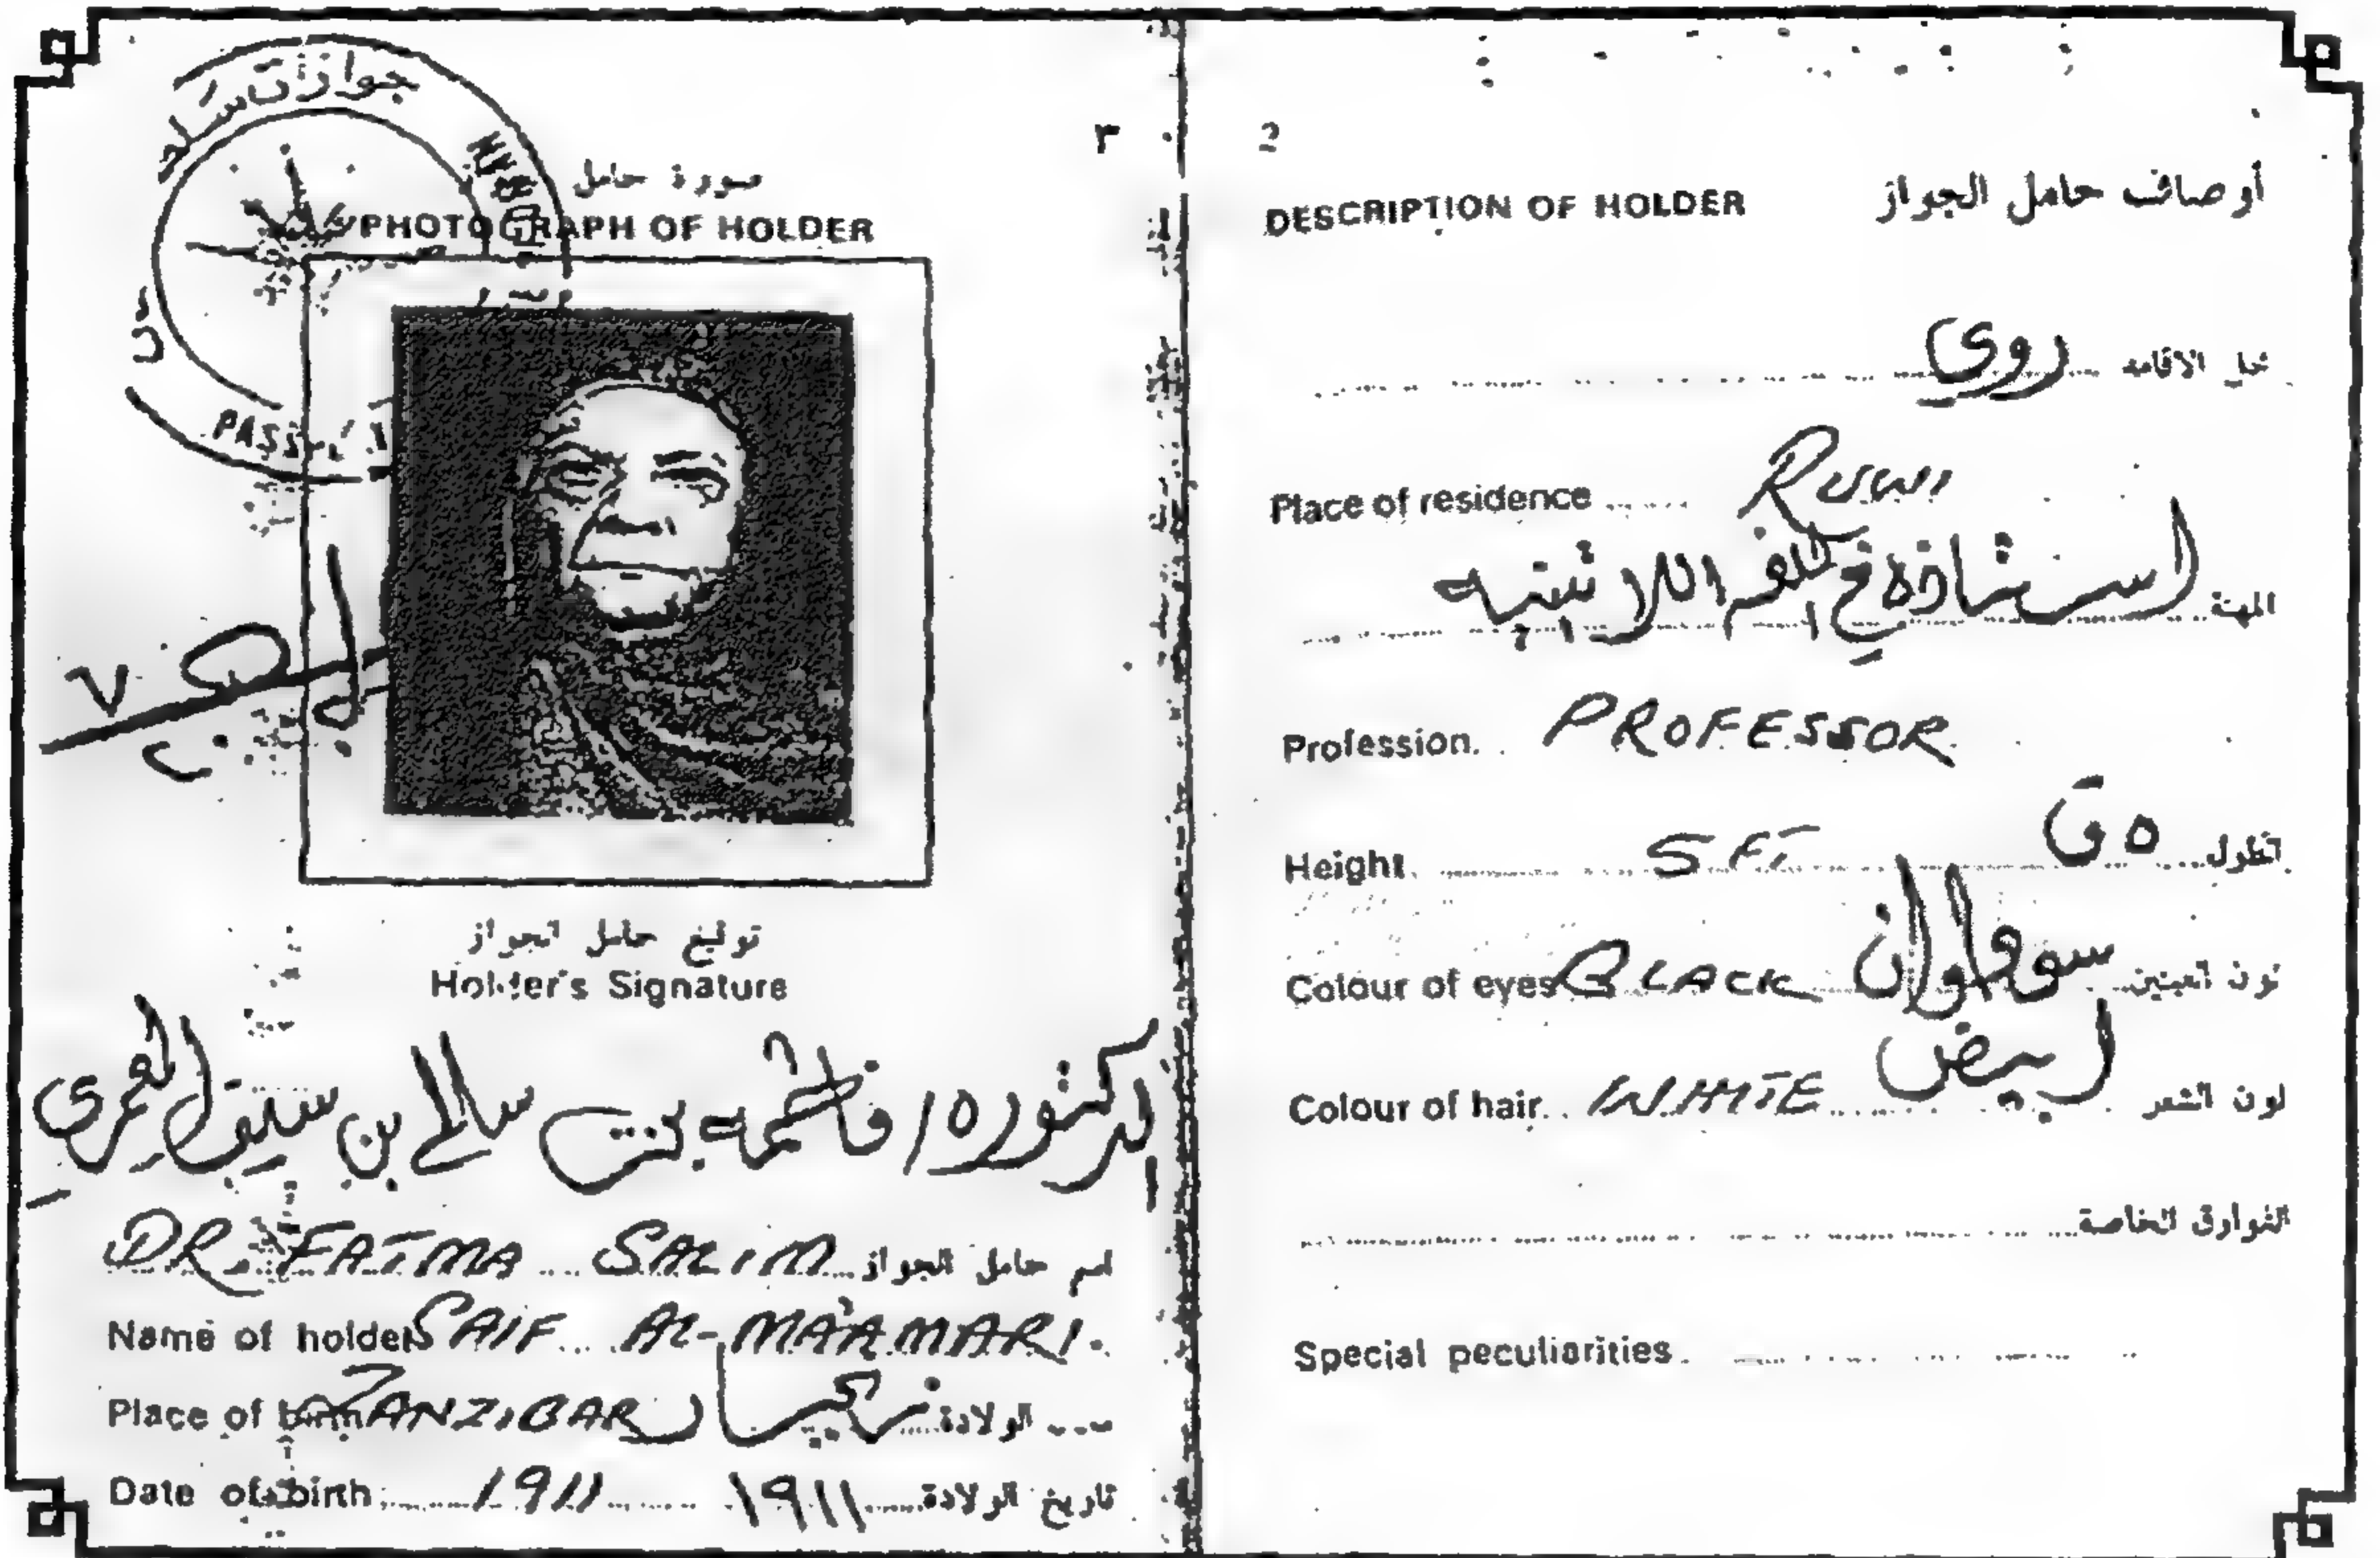 جوازات
PASS
صورة حامل
PHOTOGRAPH OF HOLDER
٣
توقيع حامل الجواز
Holder's Signature
الدكتوره / فاطمه بنت سالم بن سيف المعمري
DR. FATMA SALIM اسم حامل الجواز
Name of holder SAIF AL-MA'AMARI.
Place of birth ZANZIBAR زنجبار الولادة
Date of birth 1911 ١٩١١ تاريخ الولادة
2
DESCRIPTION OF HOLDER أوصاف حامل الجواز
محل الاقامه روي
Place of residence RUWI
المهنة استاذه في اللاتينيه
Profession PROFESSOR
Height 5 FT ٥ ق الطول
Colour of eyes BLACK سوداوان لون العينين
Colour of hair WHITE ابيض لون الشعر
الفوارق الخاصة
Special peculiarities